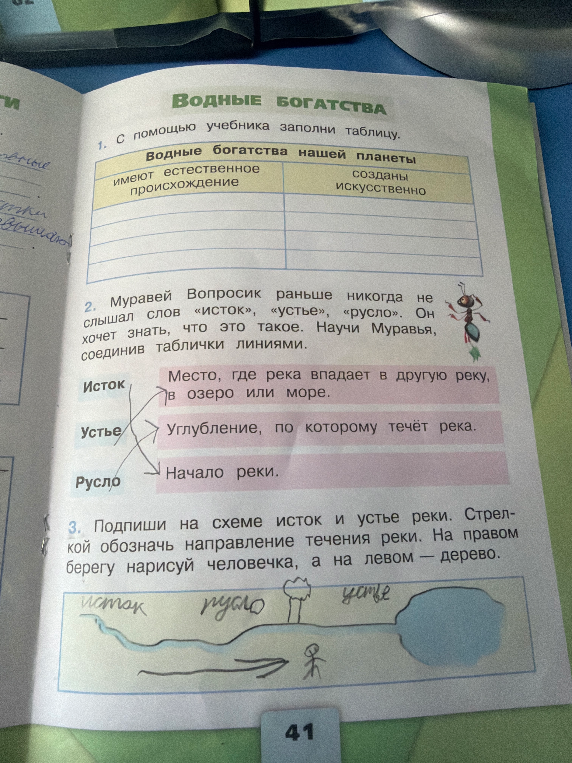 Водные богатства
1. С помощью учебника заполни таблицу.
Водные богатства нашей планеты
имеют естественное происхождение
созданы искусственно
2. Муравей Вопросик раньше никогда не
слышал слов «исток», «устье», «русло». Он
хочет знать, что это такое. Научи Муравья,
соединив таблички линиями.
Исток
Место, где река впадает в другую реку,
в озеро или море.
Устье
Углубление, по которому течёт река.
Русло
Начало реки.
3. Подпиши на схеме исток и устье реки. Стрел-
кой обозначь направление течения реки. На правом
берегу нарисуй человечка, а на левом — дерево.
исток русло устье
41